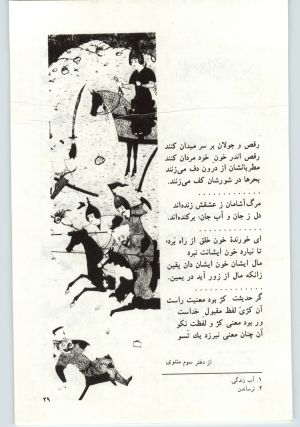 رقص و جولان بر سر میدان کنند
رقص اندر خون خود مردان کنند
مطربانشان از درون دف می‌زنند
بحرها در شورشان کف می‌زنند.
مرگ آشامان ز عشقش زنده‌اند
دل ز جان و آب جان۱ برکنده‌اند.
ای خورندهٔ خون خلق از راه برد۲
تا نیارد خون ایشانت نبرد
مال ایشان خون ایشان دان یقین
زانکه مال از زور آید در یمین.
گر حدیثت کژ بود معنیت راست
آن کژی لفظ مقبول خداست
ور بود معنی کژ و لفظت نکو
آن چنان معنی نیرزد یك تسو
از دفتر سوم مثنوی
۱. آب زندگی.
۲. ترساندن.
۲۹